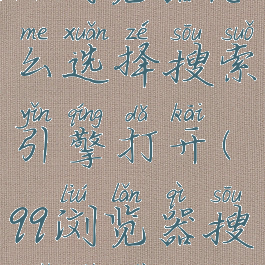 me xuǎn zé sōu suǒ
么选择搜索
yǐn qíng dǎ kāi
引擎打开(
liú lǎn qì sōu
99浏览器搜